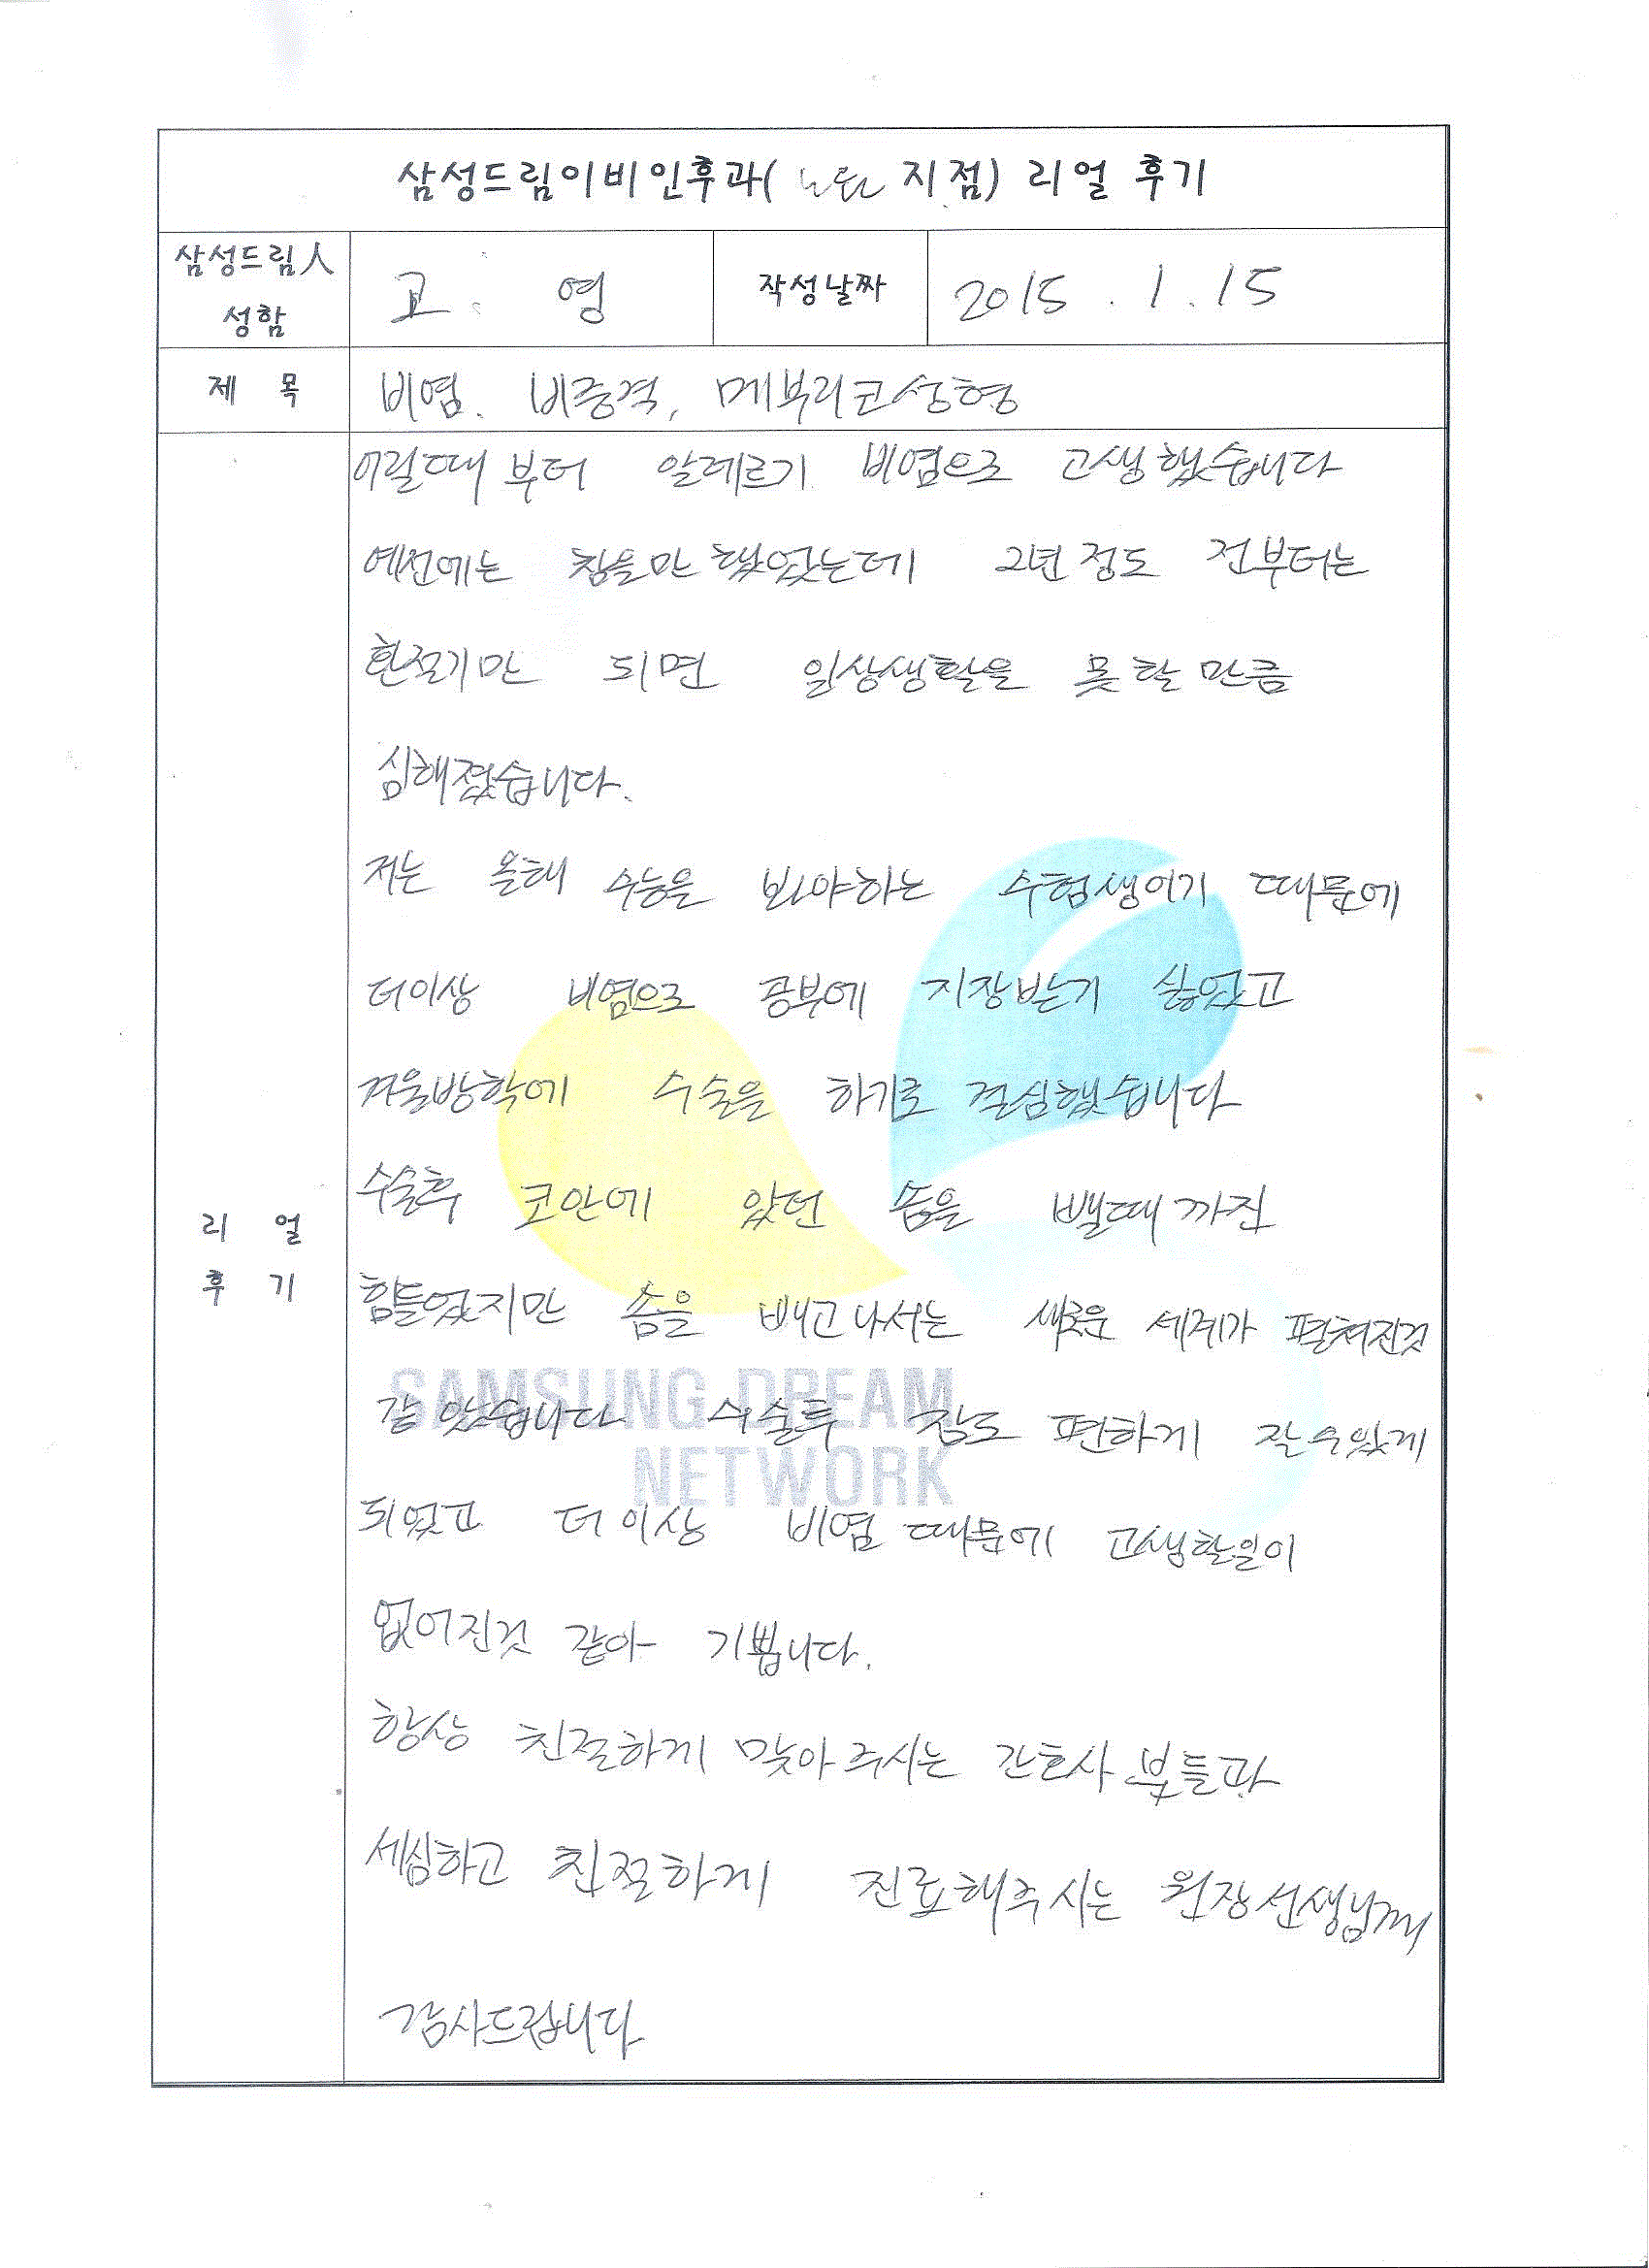 삼성드림이비인후과( 노원 지점) 리얼 후기
삼성드림人 성함
고 영
작성날짜
2015 . 1 . 15
제 목
비염. 비중격, 메부리코성형
리 얼 후 기
어릴때 부터 알레르기 비염으로 고생했습니다
예전에는 참을만 했었는데 2년 정도 전부터는
환절기만 되면 일상생활을 못할만큼
심해졌습니다.
저는 올해 수능을 봐야하는 수험생이기 때문에
더이상 비염으로 공부에 지장받기 싫었고
겨울방학에 수술을 하기로 결심했습니다
수술후 코안에 있던 솜을 뺄때 까진
힘들었지만 솜을 빼고나서는 새로운 세계가 펼쳐진것
같았습니다 수술후 잠도 편하게 잘수있게
되었고 더이상 비염 때문에 고생할일이
없어진것 같아 기쁩니다.
항상 친절하게 맞아주시는 간호사 분들과
세심하고 친절하게 진료해주시는 원장선생님께
감사드립니다
SAMSUNG DREAM
NETWORK